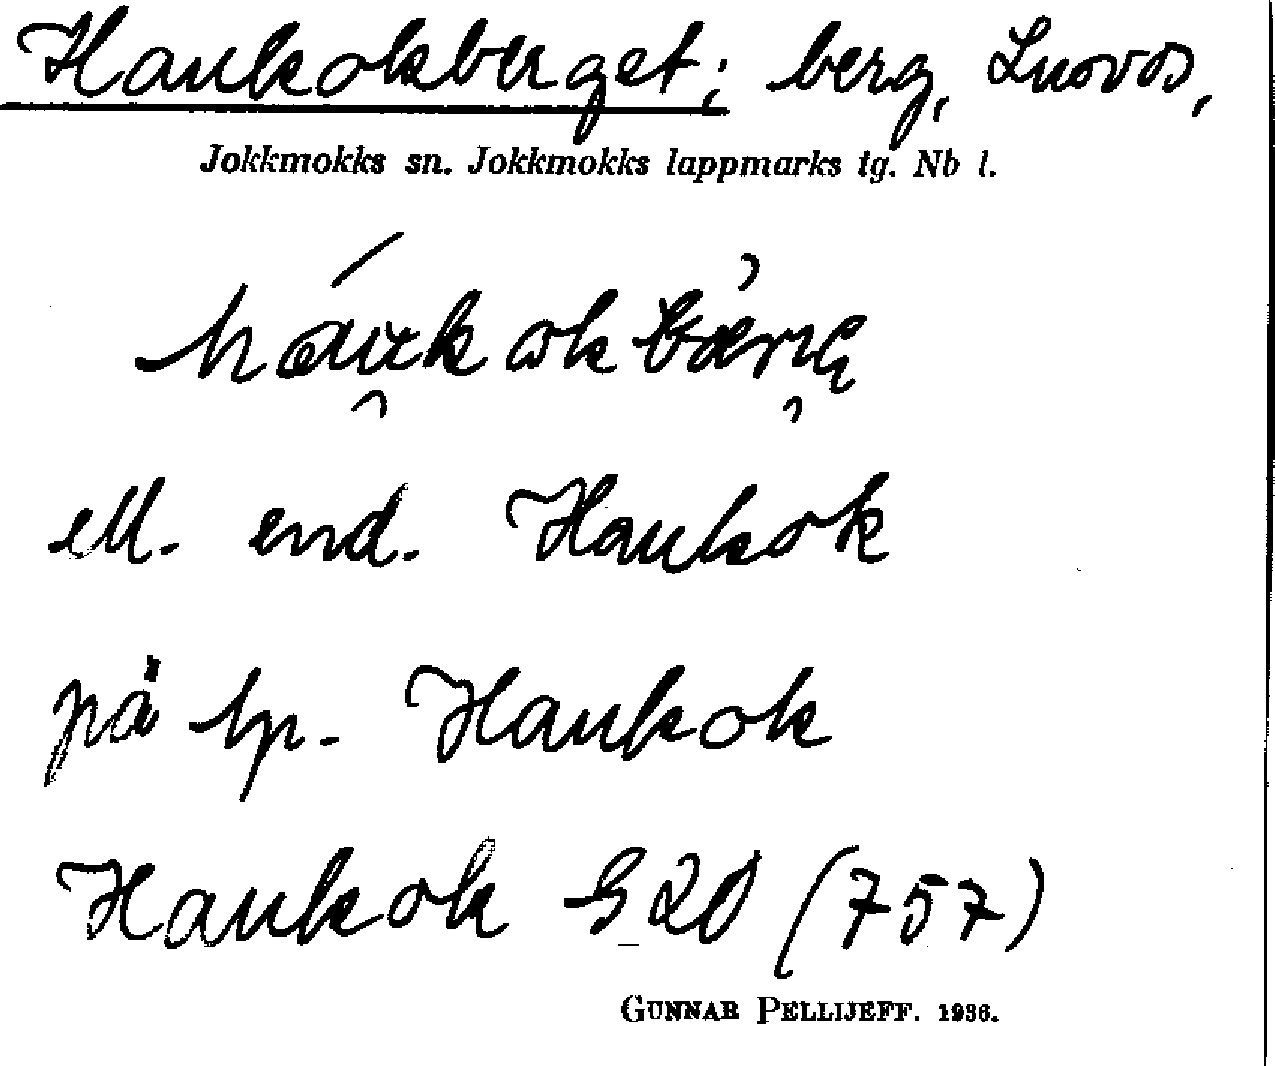 Haukokberget; berg, Luovos,
Jokkmokks sn. Jokkmokks lappmarks tg. Nb l.
ell. end. Haukok
på hp. Haukok
Haukok S 20 (757)
GUNNAR PELLIJEFF. 1936.